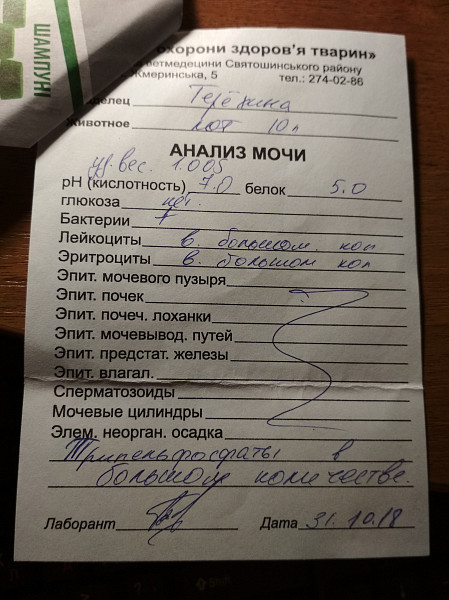 ШАМПУНІ
охорони здоров'я тварин»
ветмедецини Святошинського району
Жмеринська, 5 тел.: 274-02-86
делец
Животное кот 10л
АНАЛИЗ МОЧИ
уд. вес. 1.005
pH (кислотность) 7.0 белок 5.0
глюкоза нет.
Бактерии
Лейкоциты в. большом кол
Эритроциты в. большом кол
Эпит. мочевого пузыря
Эпит. почек
Эпит. почеч. лоханки
Эпит. мочевывод. путей
Эпит. предстат. железы
Эпит. влагал.
Сперматозоиды
Мочевые цилиндры
Элем. неорган. осадка
Трипельфосфаты в
большом количестве.
Лаборант Дата 31.10.18